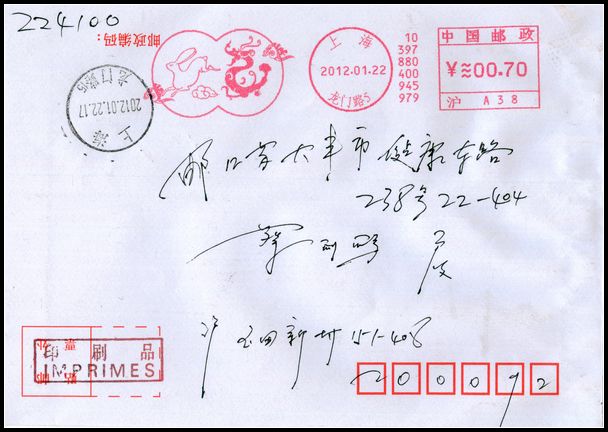 224100
邮政编码:
上海
2012.01.22
龙门路5
10
397
880
400
945
979
中国邮政
¥≈00.70
沪 A38
上海
2012.01.22.17
龙门路5
大丰市健康东路
238号22-404
沪 玉田新村 51-408
印刷品
IMPRIMES
200092